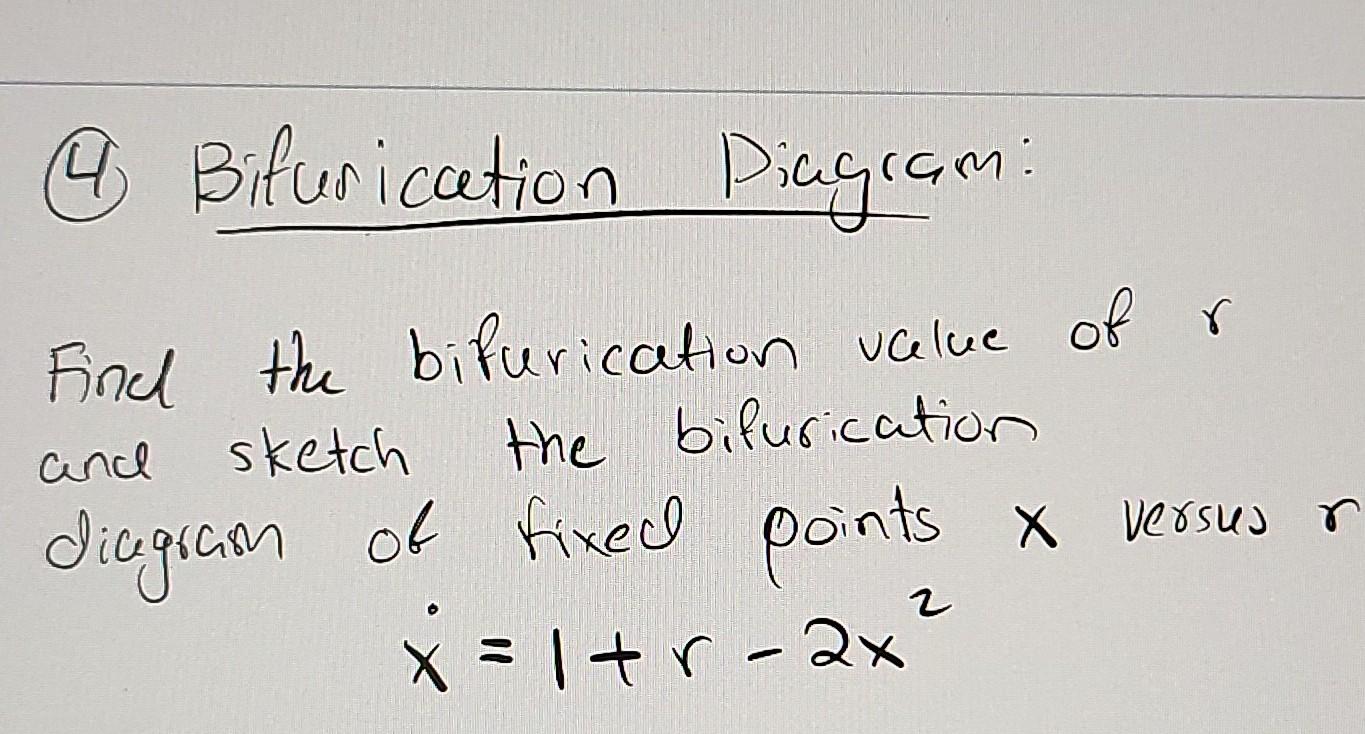 ④ Bifurication Diagram:
Find the bifurication value of r
and sketch the bifurication
diagram of fixed points x versus r
ẋ = 1 + r - 2x²